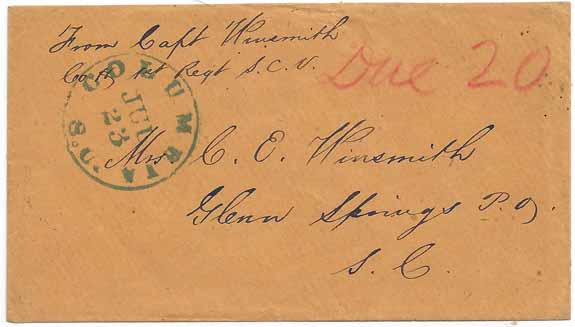 From Capt Winsmith
Co H, 1st Regt S.C.V.
Due 20
COLUMBIA S.C.
JUL
23
Mrs. C. E. Winsmith
Glenn Springs P.O,
S. C.